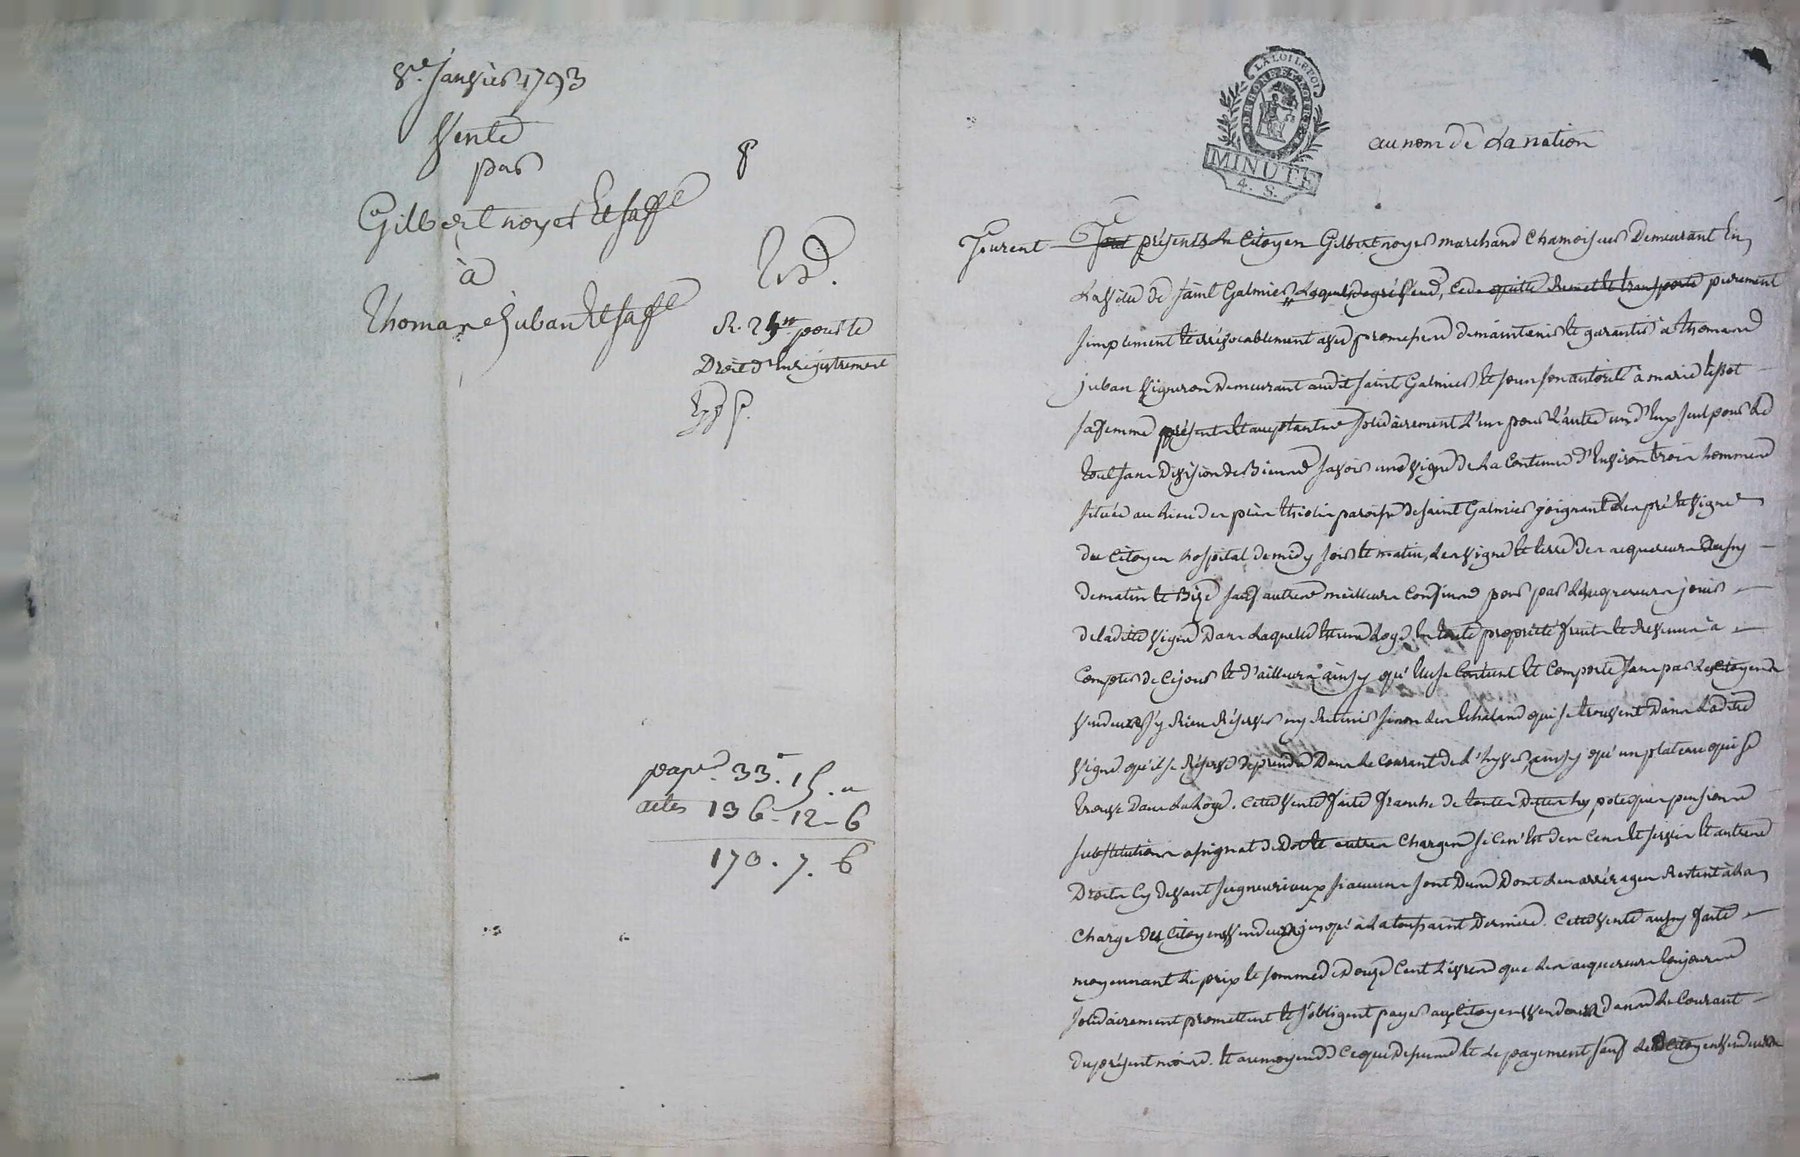 8e. Janvier 1793
Vente
par
Gilbert noyer Et sa ffe
à
Thomas Juban Et sa ffe
8
R. 25lt pour le
Droit d'Enregistrement
pape. 33. 15.
actes 136-12-6
170. 7. 6
LA LOI LE ROI
MINUTE
4. S.
au nom de La nation
furent présents Le Citoyen Gilbert noyer marchand Chamoiseur Demeurant En
La ville de saint Galmier, Lequel de gré vend, Cede quitte Remet et transporte purement
simplement et irrévocablement avec promesse de maintenir et garantir à thomas
juban vigneron Demeurant audit saint Galmier et sous son autorité à marie tissot
sa femme présents et acceptants solidairement L'un pour L'autre un d'Eux seul pour Le
tout sans Division de Biens savoir une vigne de La Contenue d'Environ trois hommes
située au Lieu de paroisse de saint Galmier joignant Les pré et vigne
du Citoyen hospital de midy soir et matin, Les vigne et terre des acquereurs aussy
de matin et Bize sauf autres meilleurs Confins pour par Les acquereurs jouir
de ladite vigne Dans Laquelle est une Loge En toute propriété fruits et Revenus à
Compter de Ce jour et d'ailleurs ainsy qu'Elle se Contient et Comporte sans par Les Citoyens
vendeurs y Rien Réserver ny Retenir sinon Les qui se trouvent Dans Ladite
vigne qu'il se Réserve de prendre Dans Le Courant de L'hyver, ainsy qu'un plateau qui se
trouve Dans La Loge. Cette vente faite franche de toutes Dettes hypoteques pensions
substitutions assignat de Dot et autres Charges si Ce n'est des Cens et servis et autres
Droits Cy devant seigneuriaux si aucuns sont Dus Dont Les arrérages Restent à La
Charge des Citoyens vendeurs jusqu'à La toussaint Derniere. Cette vente aussy faite
moyennant Le prix et somme de Douze Cent Livres que Les acquereurs Conjoints
solidairement promettent et s'obligent payer aux Citoyens vendeurs dans Le Courant
du présent mois. Et au moyen de Ce que Dessus et Le payement sauf Les Citoyens vendeurs